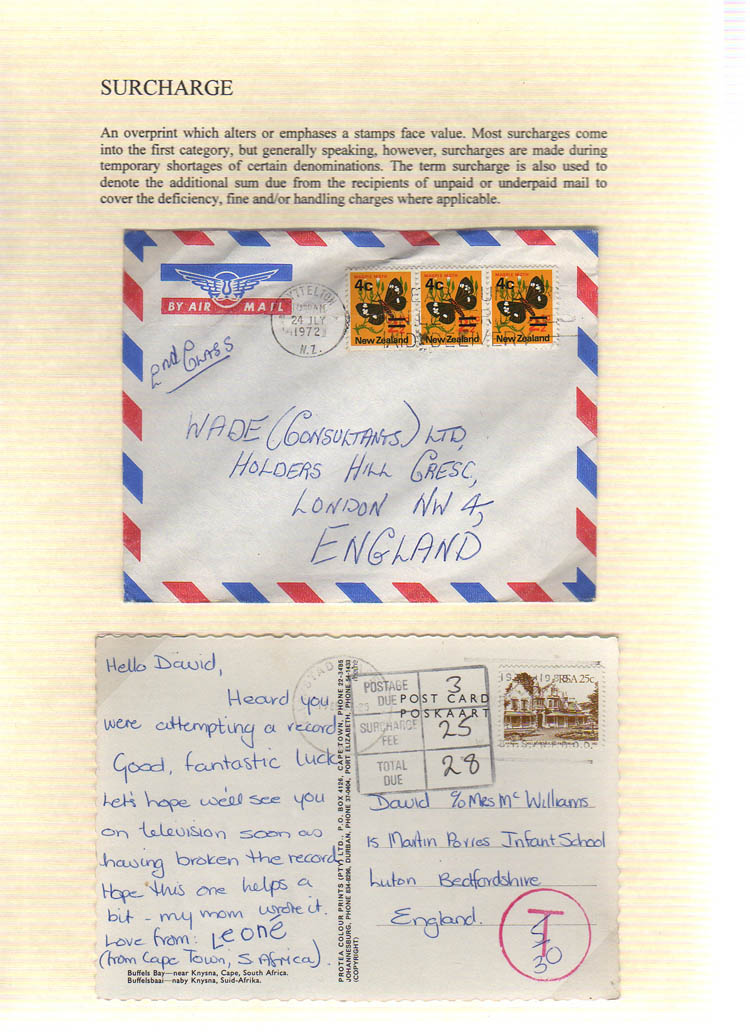 SURCHARGE
An overprint which alters or emphases a stamps face value. Most surcharges come
into the first category, but generally speaking, however, surcharges are made during
temporary shortages of certain denominations. The term surcharge is also used to
denote the additional sum due from the recipients of unpaid or underpaid mail to
cover the deficiency, fine and/or handling charges where applicable.
BY AIR MAIL
LYTTELTON
24 JLY
1972
N.Z.
MAGPIE MOTH MAGPIE MOTH MAGPIE MOTH
4c 4c 4c
New Zealand New Zealand New Zealand
2nd CLASS
WADE (CONSULTANTS) LTD,
HOLDERS HILL CRESC,
LONDON NW 4,
ENGLAND
Hello David,
Heard you
were attempting a record
Good, fantastic luck
Let's hope we'll see you
on television soon as
having broken the record
Hope this one helps a
bit - my mom wrote it.
Love from: Leoné
(from Cape Town, S. Africa).
Buffels Bay—near Knysna, Cape, South Africa.
Buffelsbaai—naby Knysna, Suid-Afrika.
PROTEA COLOUR PRINTS (PTY) LTD., P.O. BOX 4126, CAPE TOWN, PHONE 22-3495
JOHANNESBURG, PHONE 834-6296, DURBAN, PHONE 37-0404, PORT ELIZABETH, PHONE 54-1433
(COPYRIGHT)
POSTAGE DUE 3
SURCHARGE FEE 25
TOTAL DUE 28
POST CARD
POSKAART
RSA 25c
David c/o Mrs Mc Williams
15 Martin Porres Infant School
Luton Bedfordshire
England.
T
5
30